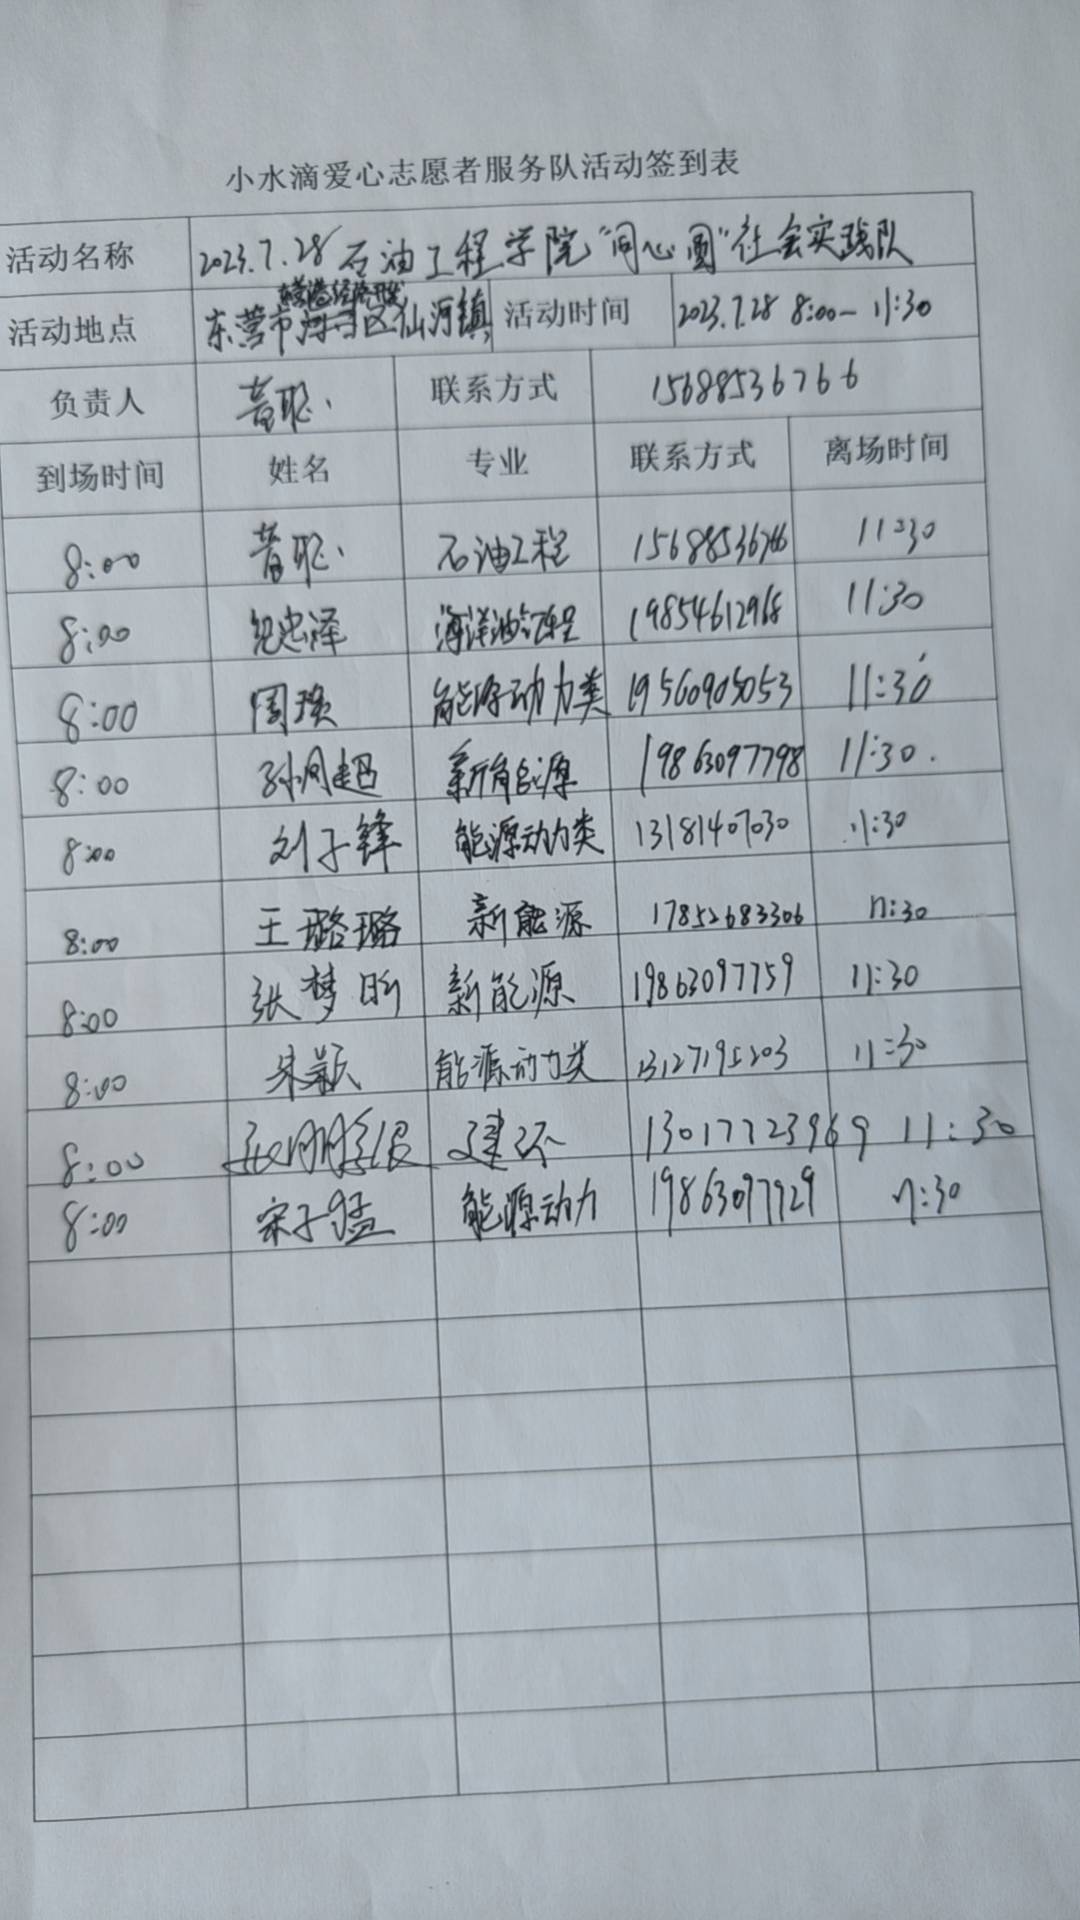 小水滴爱心志愿者服务队活动签到表
活动名称 2023.7.28 石油工程学院"同心圆"社会实践队
东营港经济开发
活动地点 东营市河口区仙河镇 活动时间 2023.7.28 8:00~11:30
负责人 昝聪 联系方式 15688536766
到场时间 姓名 专业 联系方式 离场时间
8:00 昝聪 石油工程 15688536766 11:30
8:00 纪忠泽 海洋油气工程 19854612968 11:30
8:00 周瑛 能源动力类 19560905053 11:30
8:00 孙同超 新能源 19863097798 11:30.
8:00 刘子锋 能源动力类 13181407030 11:30
8:00 王璐璐 新能源 17852683306 11:30
8:00 张梦昕 新能源 19863097759 11:30
8:00 朱颖 能源动力类 13127195203 11:30
8:00 建环 13017723969 11:30
8:00 宋子猛 能源动力 19863097929 11:30